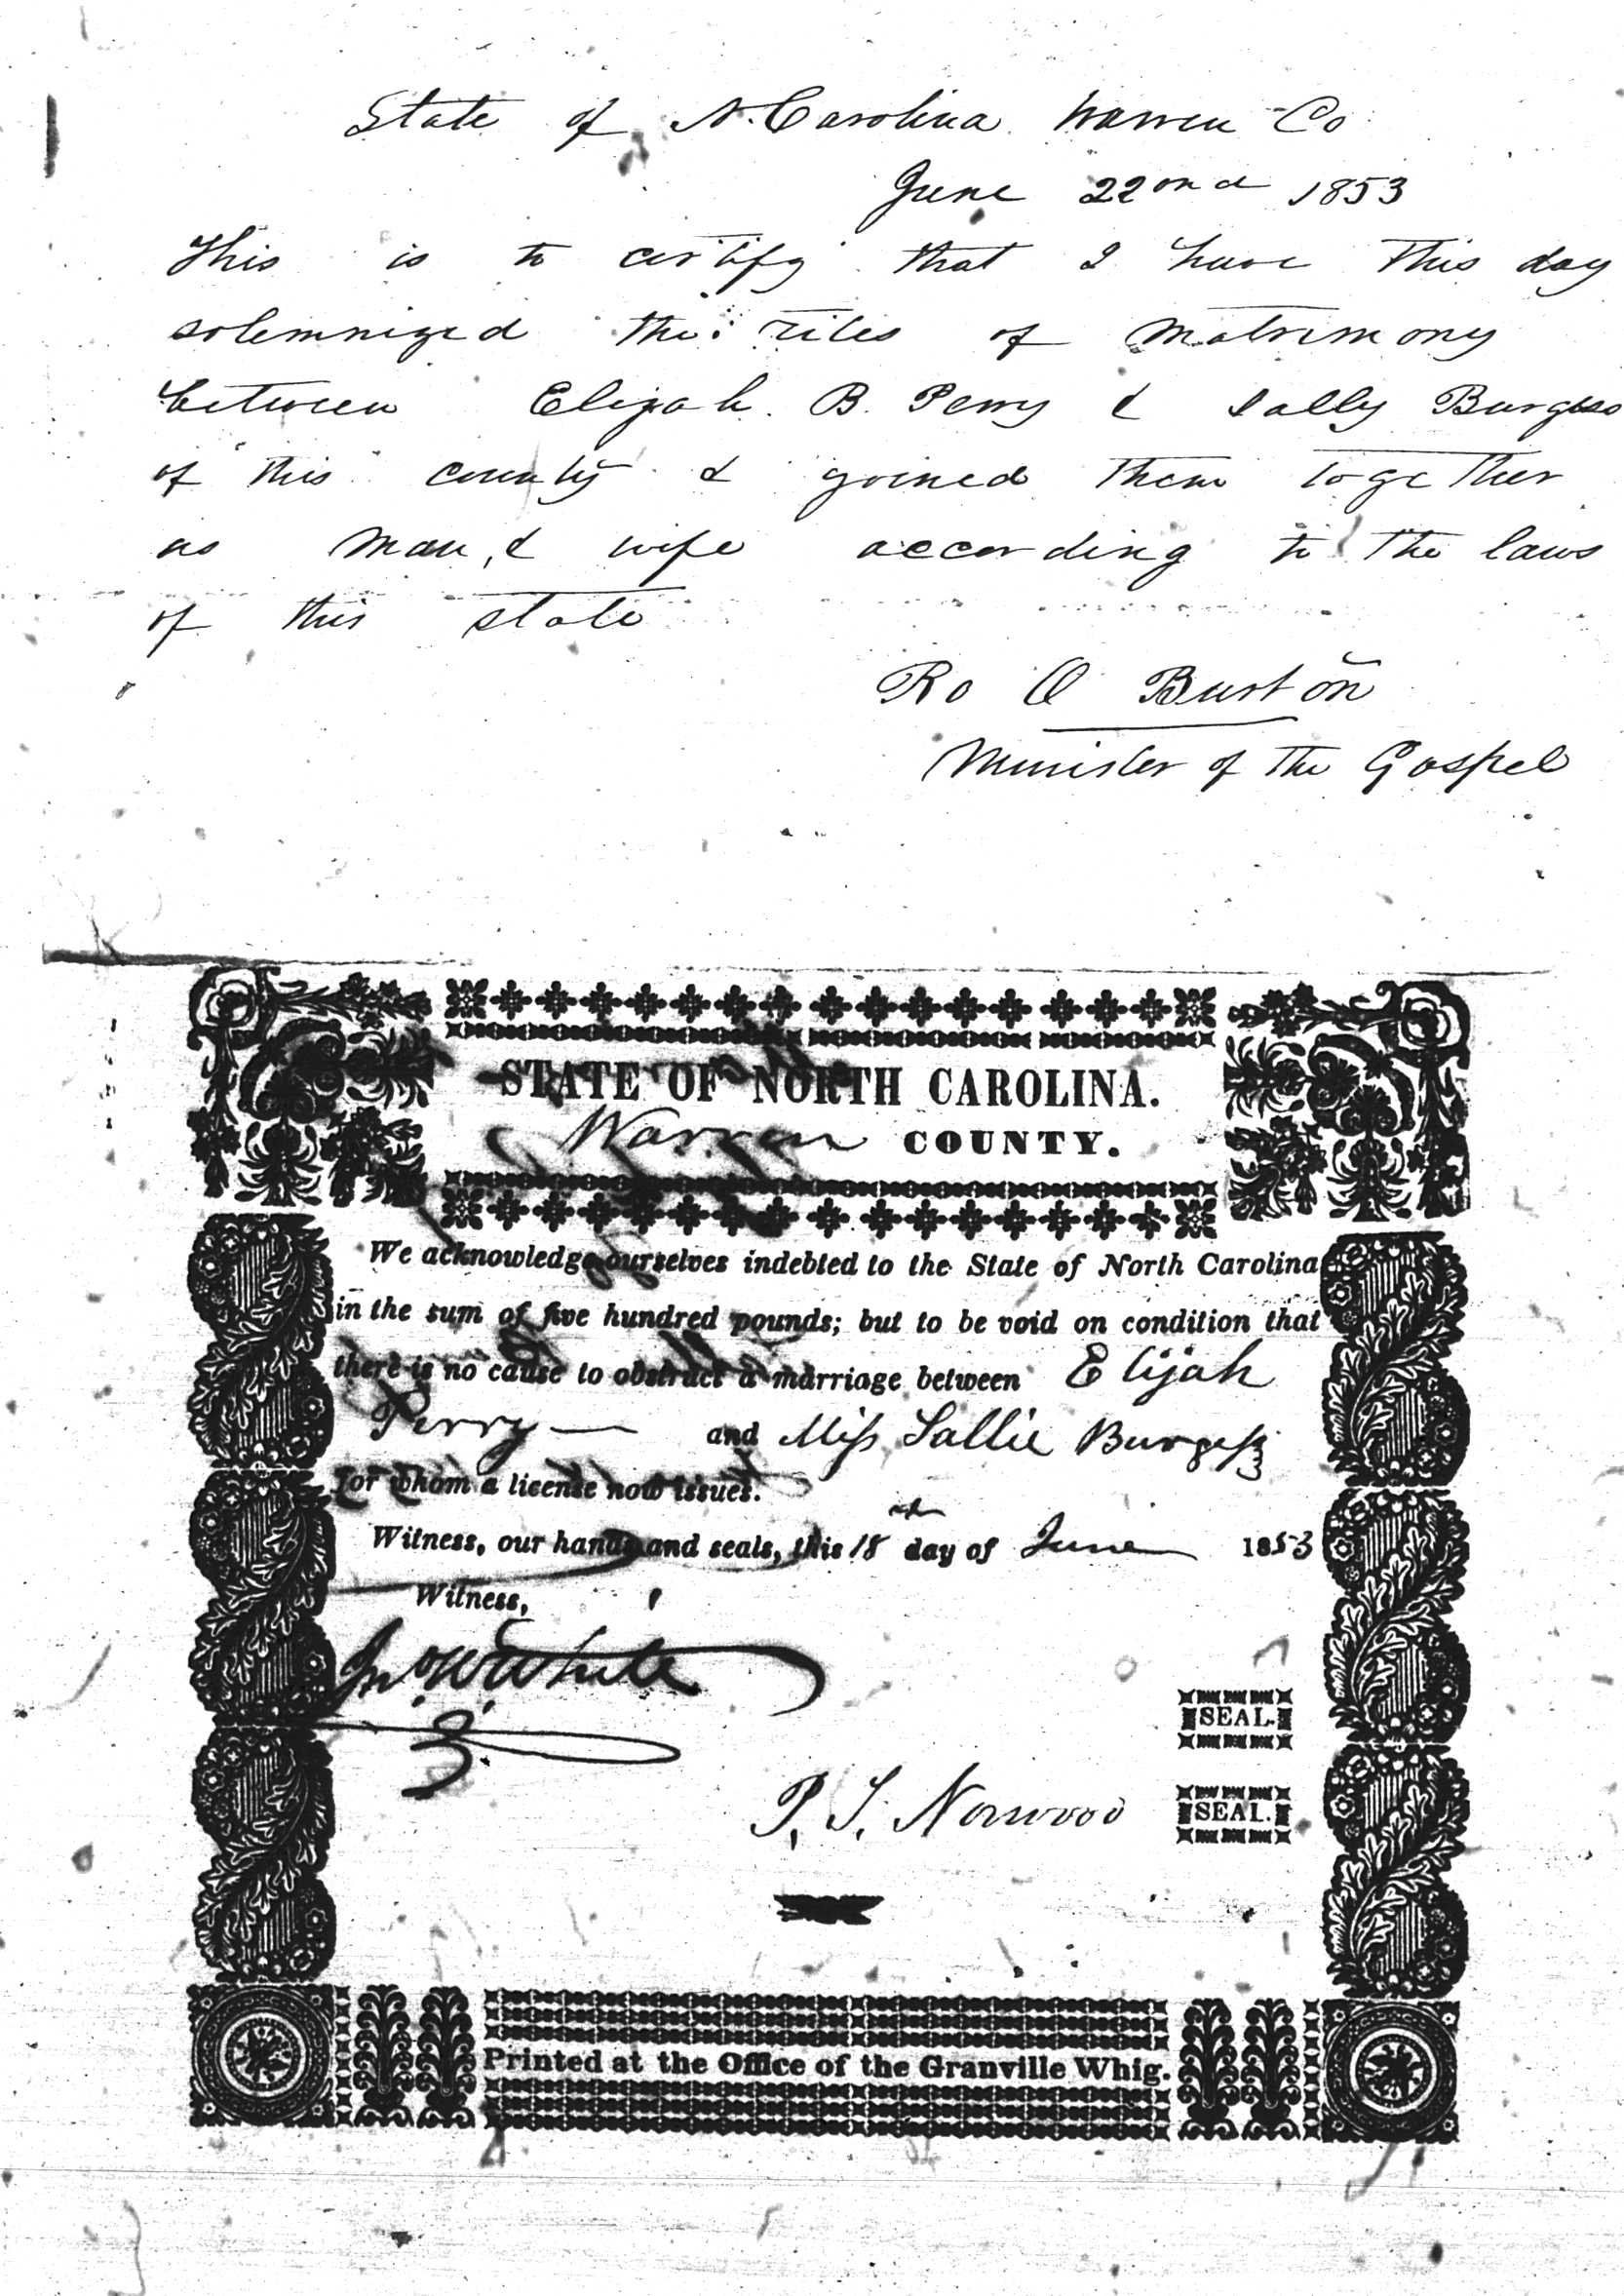 State of N. Carolina Warren Co
June 22ond 1853
This is to certify that I have this day
solemnized the rites of matrimony
between Elijah B. Perry & Sally Burgess
of this county & joined them together
as man & wife according to the laws
of this state
Ro O Burton
Minister of the Gospel
STATE OF NORTH CAROLINA.
Warren COUNTY.
We acknowledge ourselves indebted to the State of North Carolina
in the sum of five hundred pounds; but to be void on condition that
there is no cause to obstruct a marriage between Elijah
Perry — and Miss Sallie Burgess
for whom a license now issues.
Witness, our hands and seals, this 18th day of June 1853
Witness,
Jno W White
SEAL.
P. T. Norwood SEAL.
Printed at the Office of the Granville Whig.